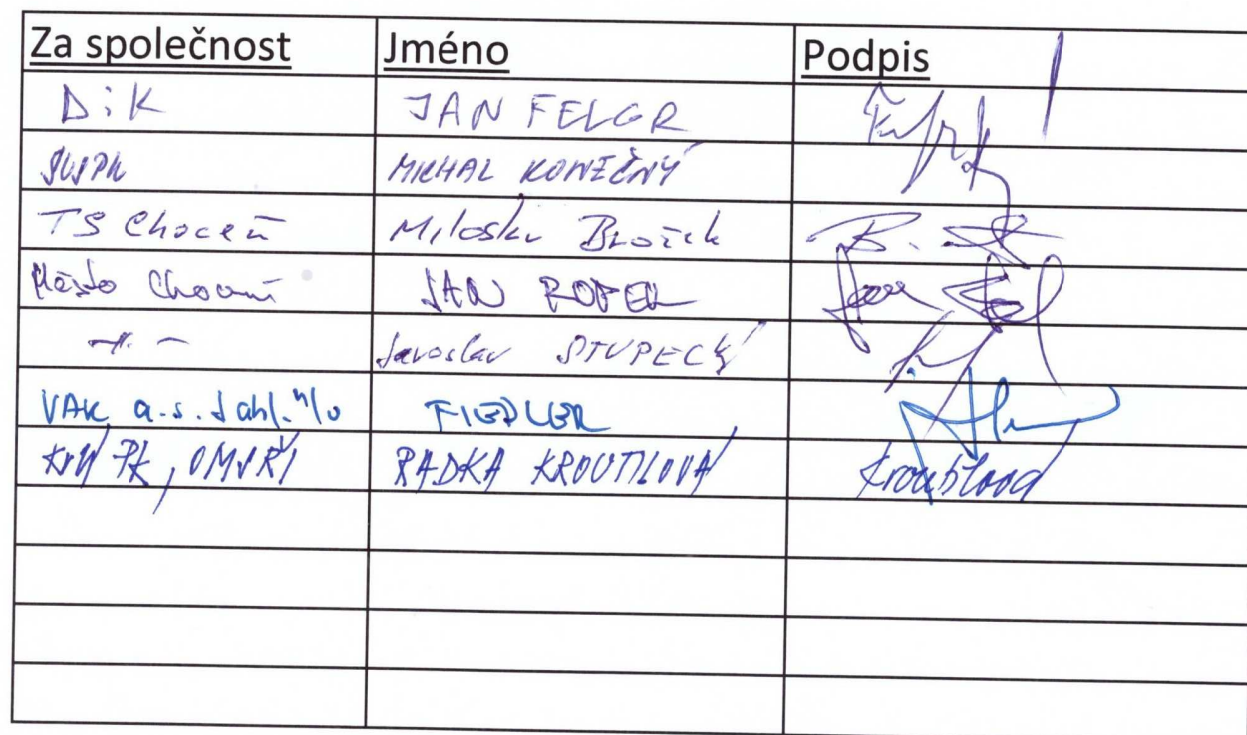 Za společnost Jméno Podpis
DiK JAN FELGR
SÚSPK MICHAL KONEČNÝ
TS Choceň Miloslav Brožek
Město Choceň JAN ROPEK
-11- Jaroslav STUPECKÝ
VAK a.s. Jabl. n/O FIEDLER
KrÚ PK, OMSŘI RADKA KROUTILOVÁ Kroutilová